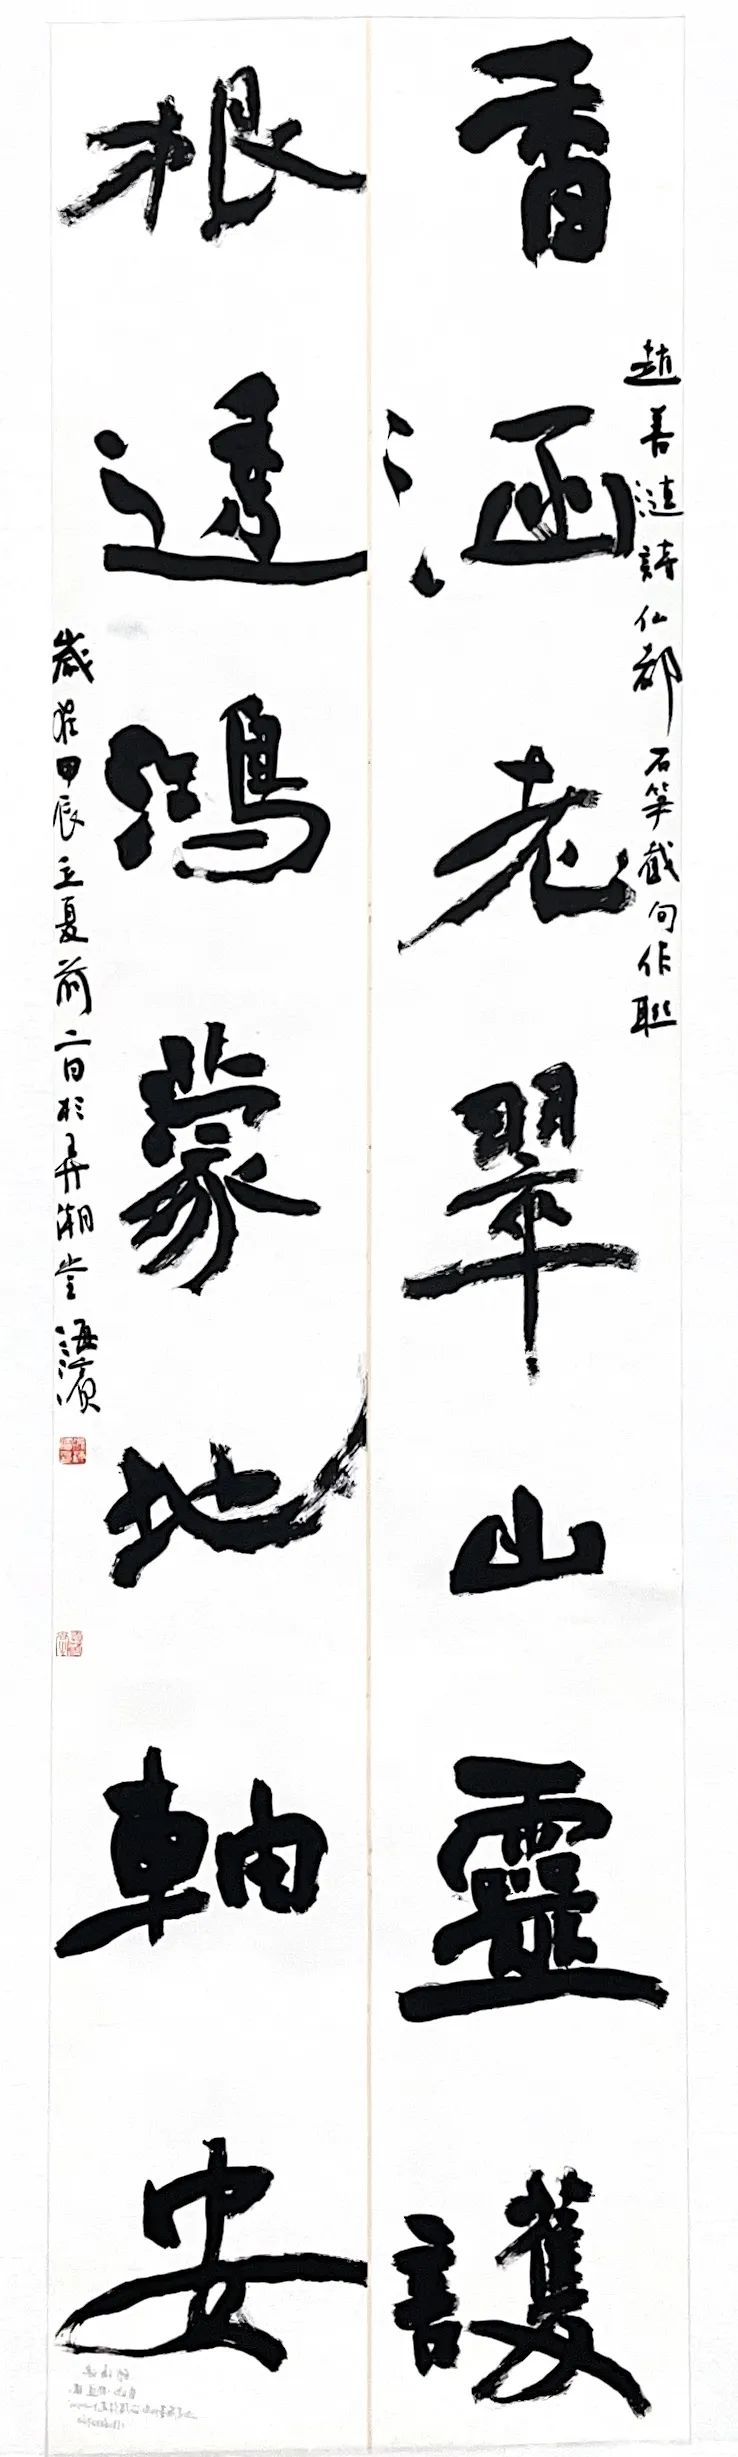 香涵老翠山靈護
趙善漣詩仙都石筍截句作聯
根透鴻蒙地軸安
歲在甲辰立夏前二日於弄潮堂海濱